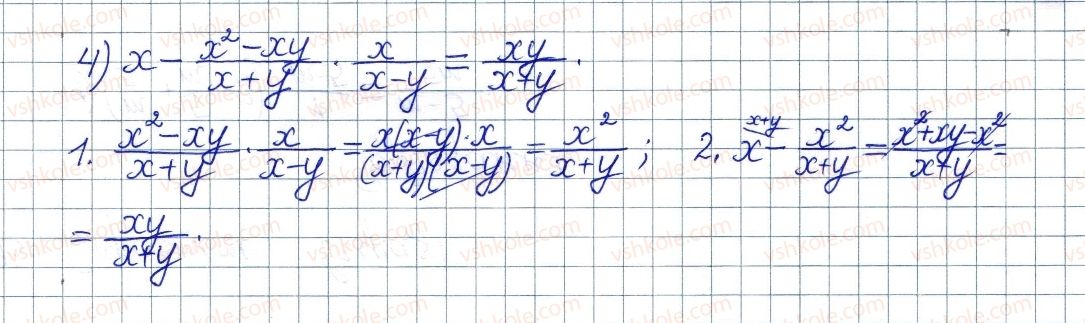 4) x - \frac{x^2 - xy}{x+y} \cdot \frac{x}{x-y} = \frac{xy}{x+y}.
1. \frac{x^2 - xy}{x+y} \cdot \frac{x}{x-y} = \frac{x(x-y) \cdot x}{(x+y)(x-y)} = \frac{x^2}{x+y}; 2. \overset{x+y}{x} - \frac{x^2}{x+y} = \frac{x^2+xy-x^2}{x+y} =
= \frac{xy}{x+y}.